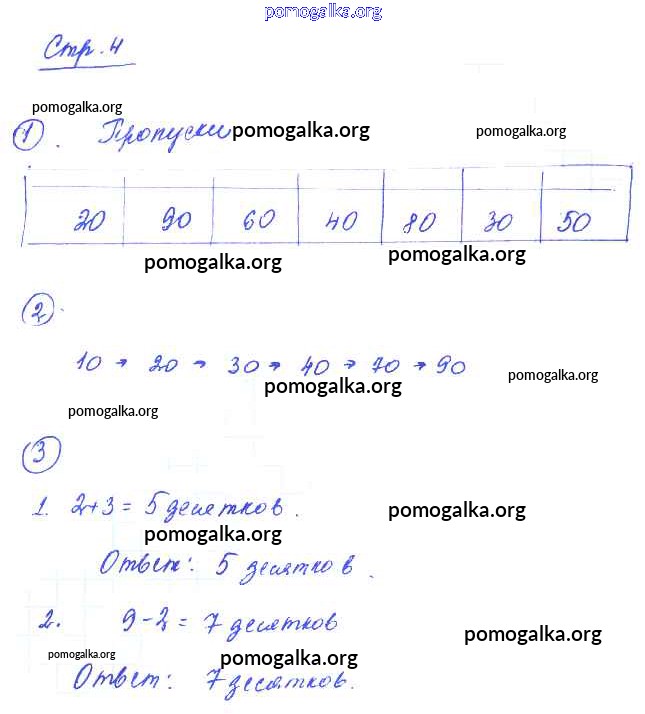 pomogalka.org
Стр. 4
pomogalka.org
1. Пропуски pomogalka.org pomogalka.org
20 90 60 40 80 30 50
pomogalka.org pomogalka.org
2.
10 → 20 → 30 → 40 → 70 → 90
pomogalka.org pomogalka.org
pomogalka.org
3
1. 2+3 = 5 десятков. pomogalka.org
pomogalka.org
Ответ: 5 десятков.
2. 9-2 = 7 десятков pomogalka.org
pomogalka.org pomogalka.org
Ответ: 7 десятков.